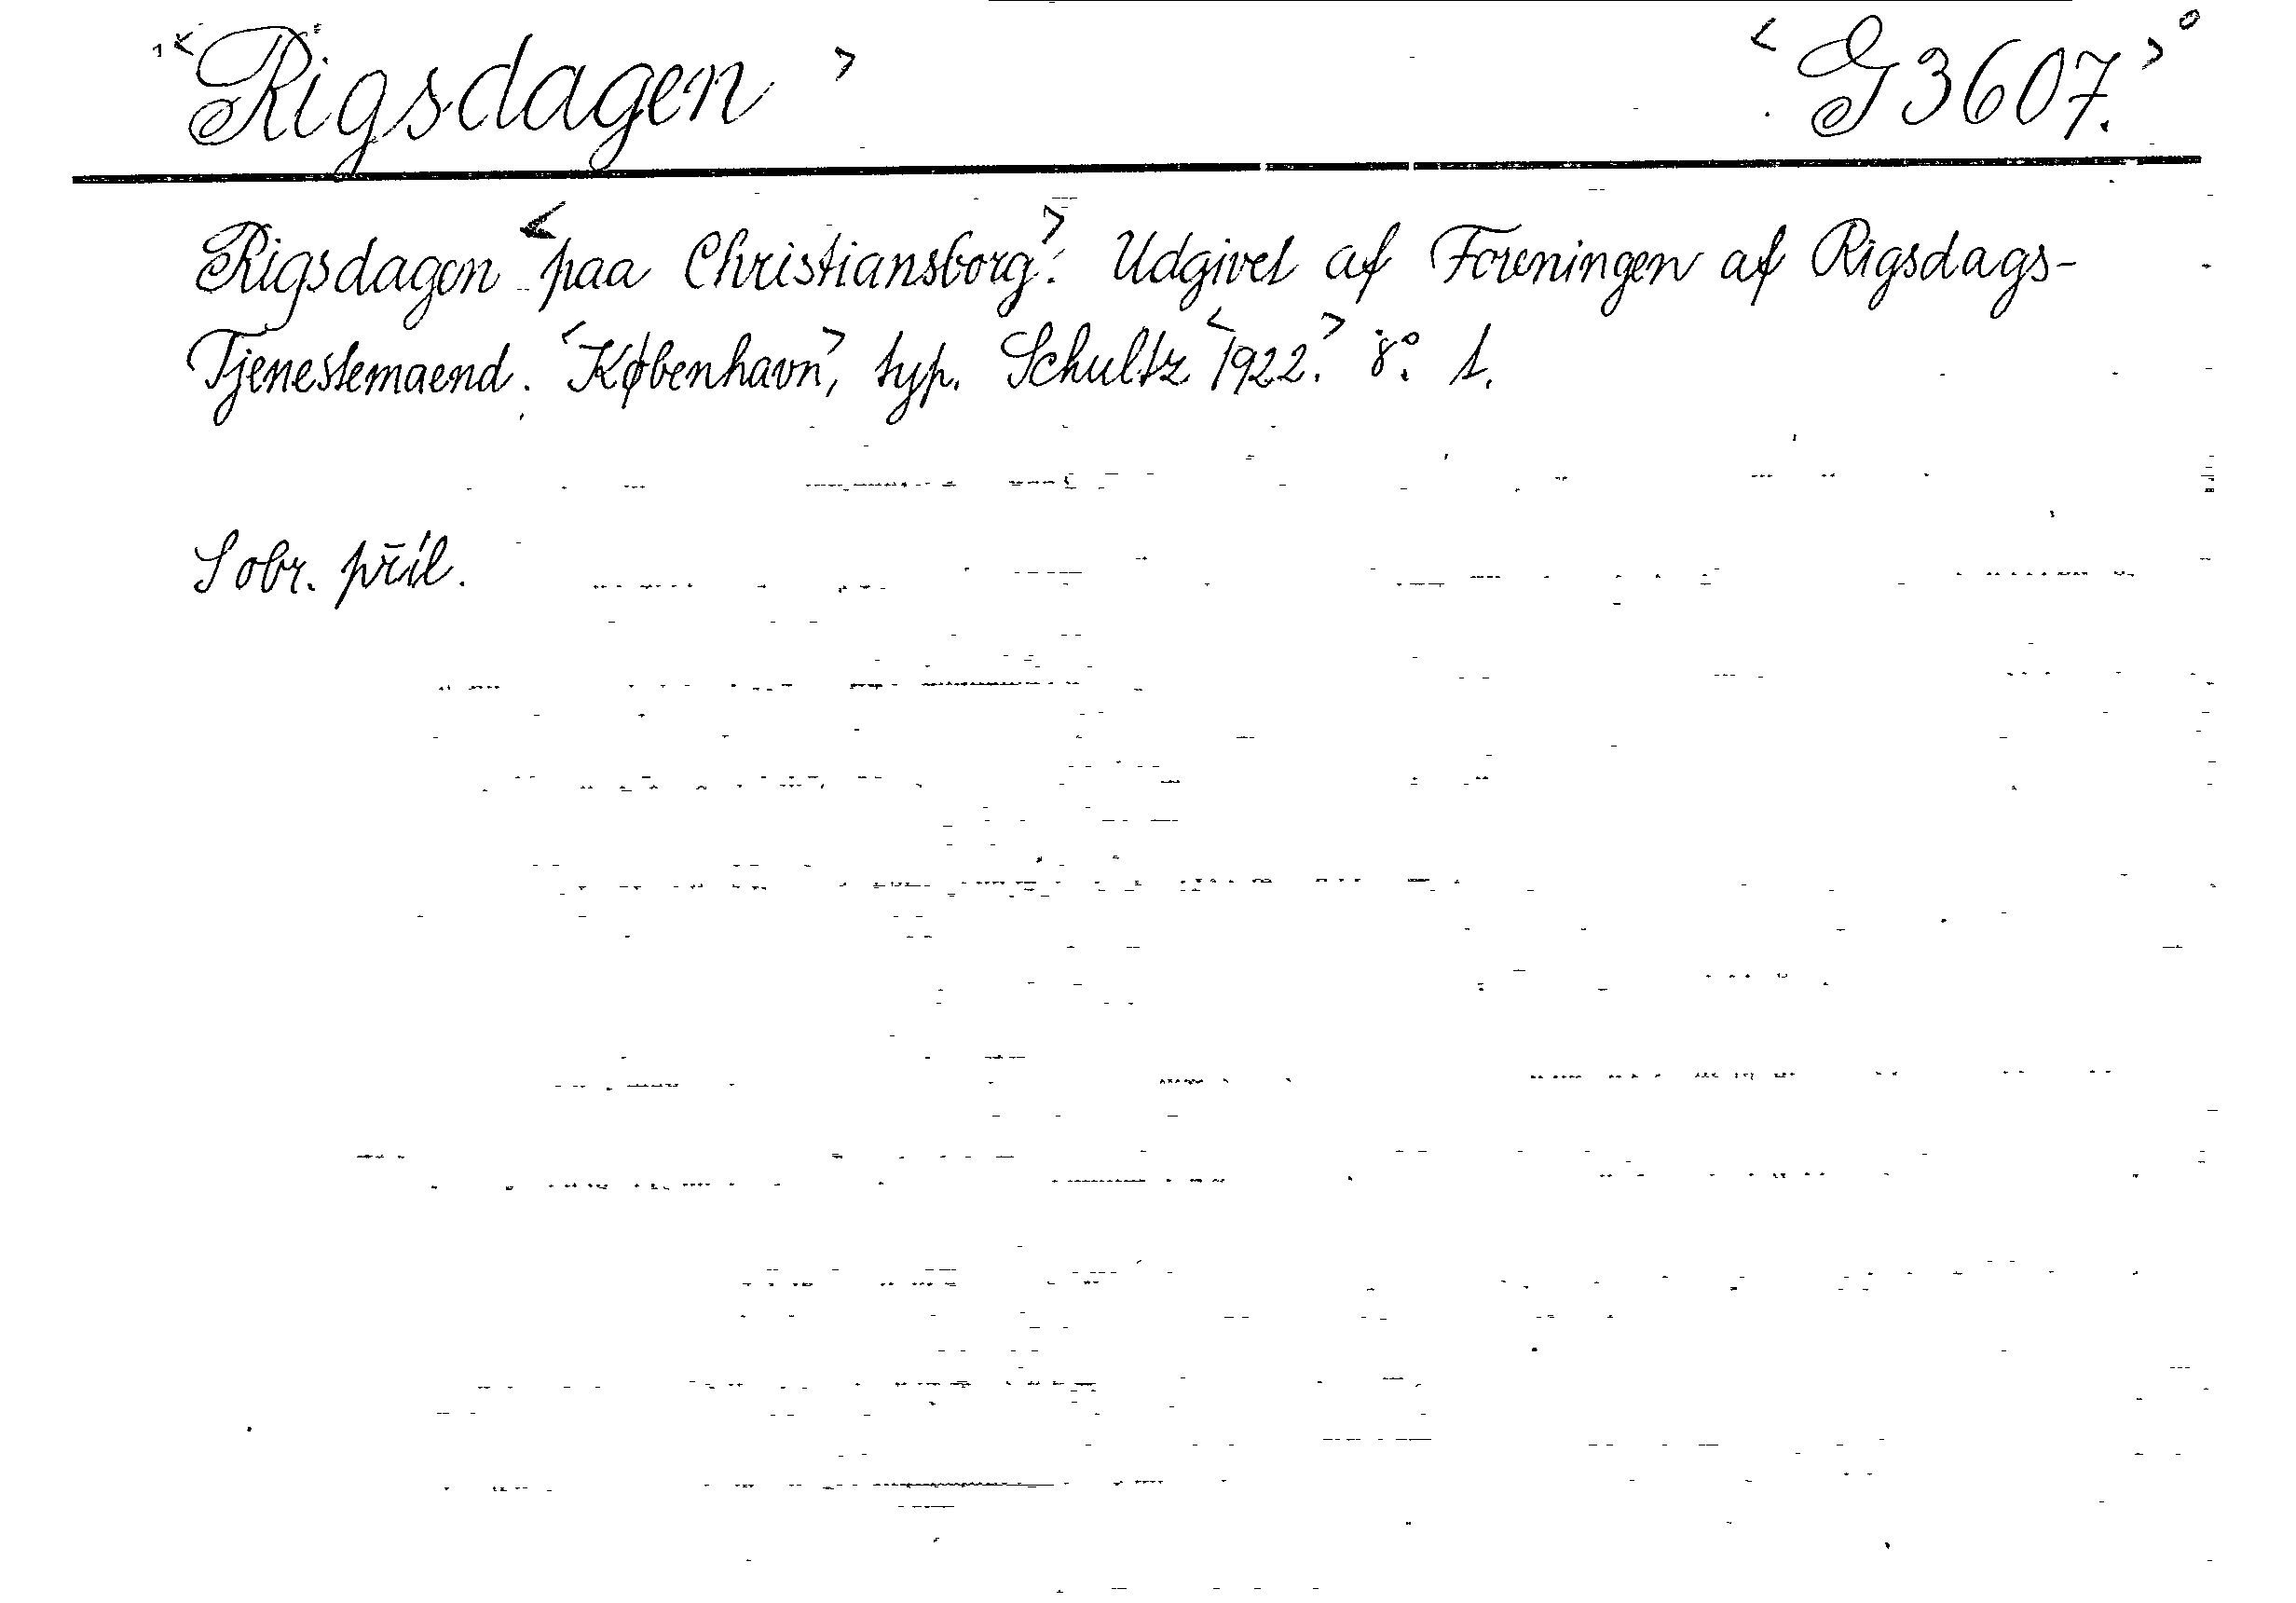 1 <Rigsdagen> <G 3607.>⁰
Rigsdagen <paa Christiansborg>. Udgivet af Foreningen af Rigsdags-
Tjenestemaend. <København>, typ. Schultz <1922.> 8°. 1.
S obr. příl.